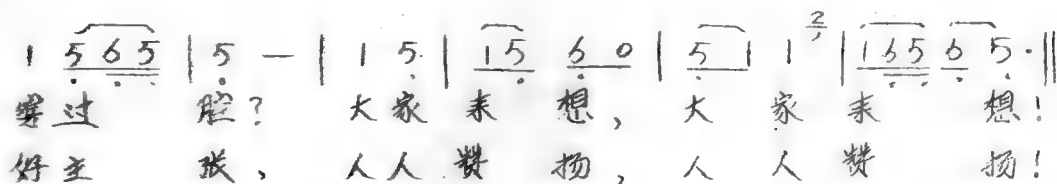 1 5 6 5 | 5 — | 1 5 | 1 5 6 0 | 5 1 1 2 | 1 6 5 6 5 · ||
过 腔? 大家 来 想, 大 家 来 想!
好主 张, 人人 赞 扬, 人 人 赞 扬!